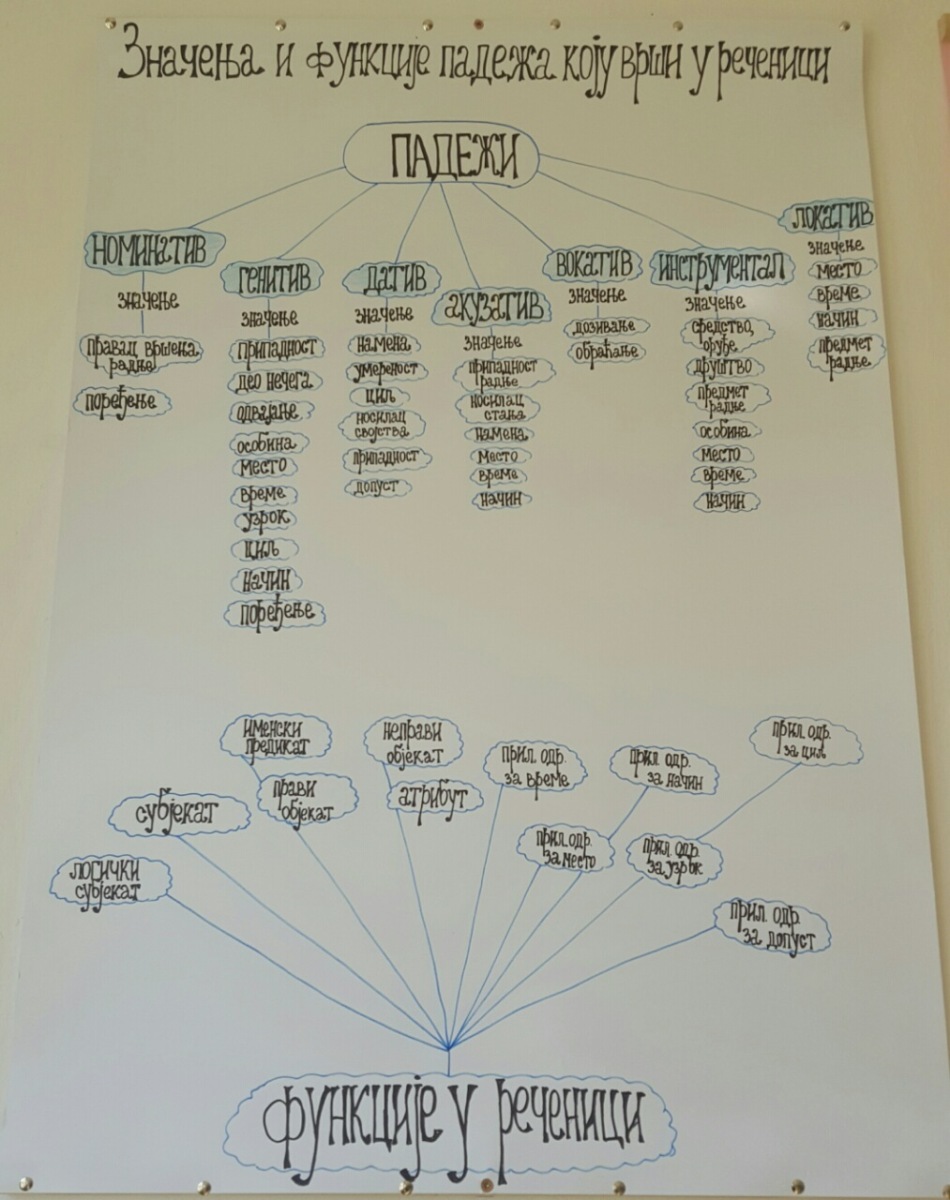 Значења и функције падежа коју врши у реченици
ПАДЕЖИ
НОМИНАТИВ
значење
правац вршења
радње
поређење
ГЕНИТИВ
значење
припадност
део нечега
одвајање
особина
место
време
узрок
циљ
начин
поређење
ДАТИВ
значење
намена
умереност
циљ
носилац
својства
припадност
допуст
АКУЗАТИВ
значење
припадност
радње
носилац
стања
намена
место
време
начин
ВОКАТИВ
значење
дозивање
обраћање
ИНСТРУМЕНТАЛ
значење
средство,
оруђе
друштво
предмет
радње
особина
место
време
начин
ЛОКАТИВ
значење
место
време
начин
предмет
радње
логички
субјекат
субјекат
именски
предикат
прави
објекат
неправи
објекат
атрибут
прил. одр.
за време
прил. одр.
за место
прил. одр.
за начин
прил. одр.
за узрок
прил. одр.
за циљ
прил. одр.
за допуст
функције у реченици